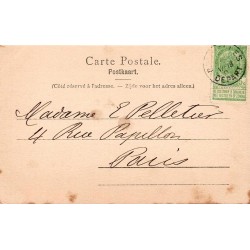 Carte Postale.
Postkaart.
(Côté réservé à l'adresse. — Zijde voor het adres alleen.)
DEPART
Madame E Pelletier
4 Rue Papillon
Paris